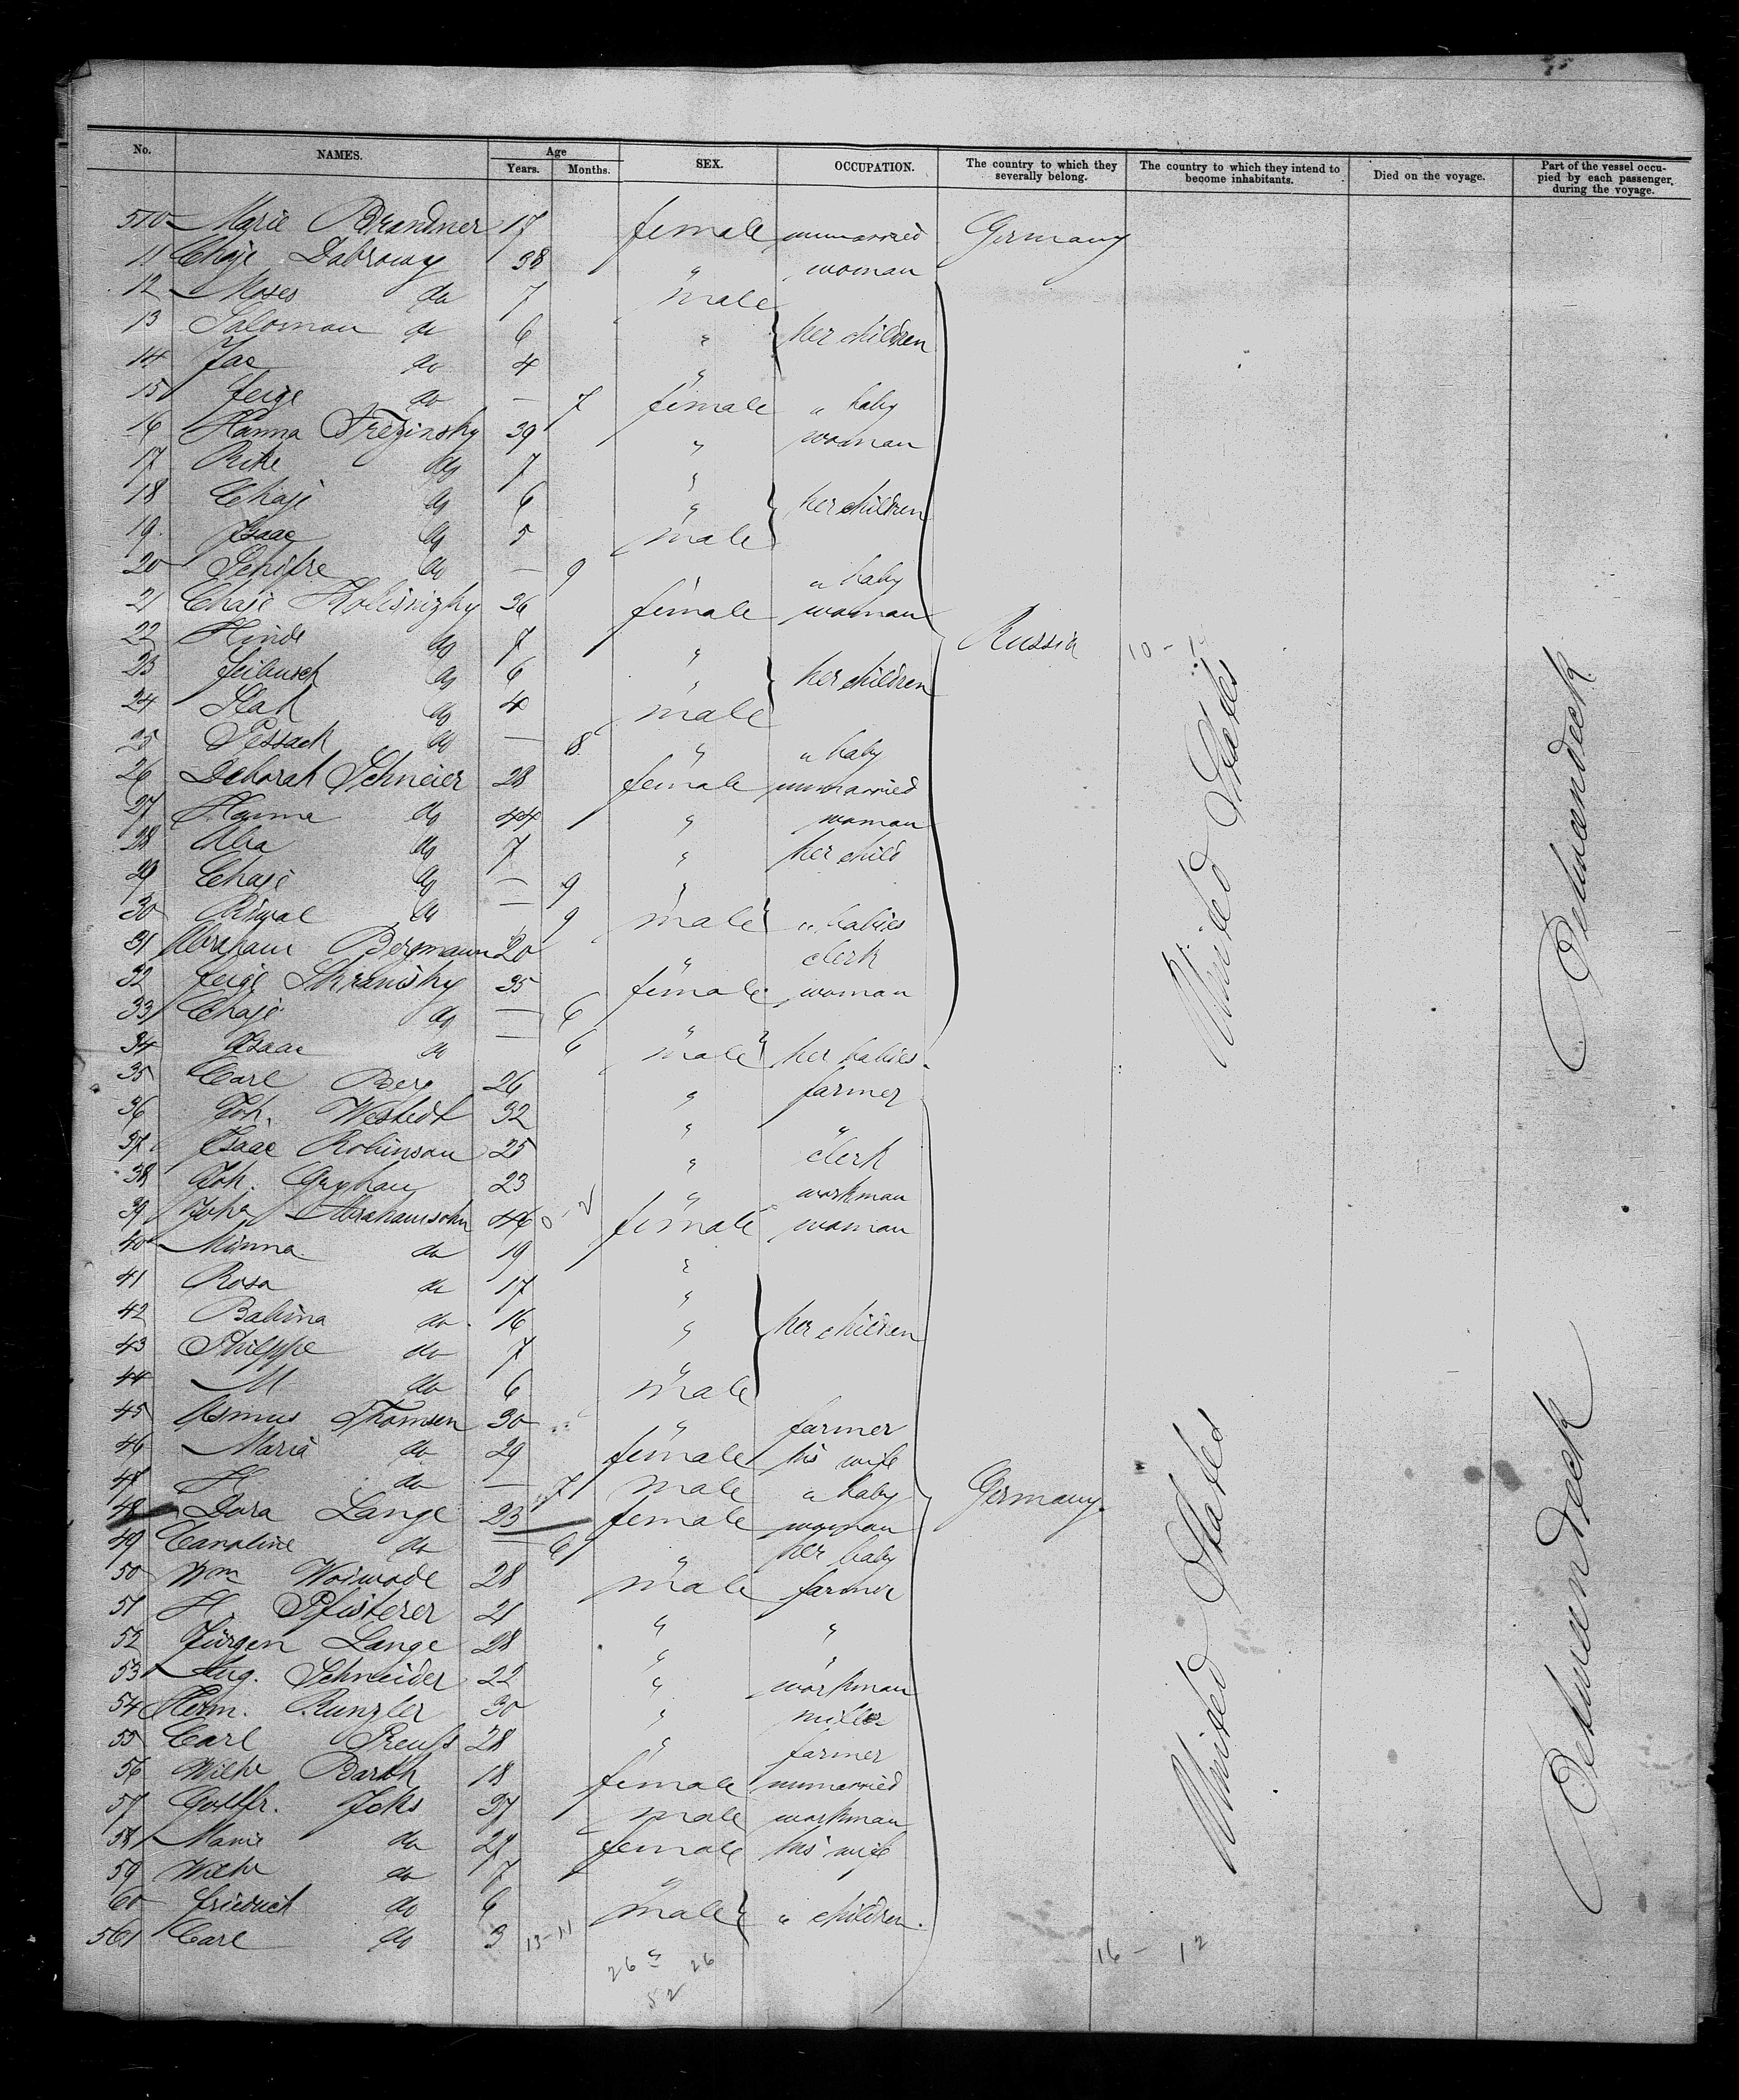 No. NAMES. Age Years. Months. SEX. OCCUPATION. The country to which they severally belong. The country to which they intend to become inhabitants. Died on the voyage. Part of the vessel occupied by each passenger, during the voyage.
510 Marie Brandner 17 female unmarried Germany
11 Chaje Dabrowy 38 " woman
12 Moses do 7 male
13 Saloman do 6 " her children
14 do 4 "
15 Feige do — 7 female " baby
16 Hanna 39 " woman
17 Rike do 7 "
18 Chaje do 6 " her children
19 Isaac do 5 male
20 Schifre do — 9 " baby
21 Chaje 36 female woman
22 Hinde do 7 " Russia
23 Leibusch do 6 " her children
24 do 4 male United States
25 Pessach do — 8 " " baby Betweendeck
26 Deborah Schneier 28 female unmarried
27 Hanne do 44 " woman
28 do 7 " her child
29 Chaje do — 9 "
30 do — 9 male " babies
31 Abraham Bergmann 20 " clerk
32 Feige 35 female woman
33 Chaje do — 6 "
34 Isaac do — 6 male her babies
35 Carl Berg 26 " farmer
36 Joh. Westedt 32 " "
37 Isaac Robinson 25 " clerk
38 Joh. 23 " workman
39 Abrahamsohn 46 female woman
40 Minna do 19 "
41 Rosa do 17 "
42 Babina do 16 " her children
43 Philippe do 7 "
44 M do 6 male
45 Asmus Thomsen 30 " farmer
46 Maria do 29 female his wife
47 H do — 7 male " baby Germany
48 Dora Lange 23 female woman
49 Caroline do — 6 " her baby United States
50 Wm Woiwode 28 male farmer Betweendeck
51 H Pfisterer 21 " "
52 Jürgen Lange 28 " "
53 Aug. Schneider 22 " workman
54 Herm. Runzler 30 " miller
55 Carl Preuß 28 " farmer
56 Wilhe Barth 18 female unmarried
57 Gottfr. Joks 37 male workman
58 Marie do 27 female his wife
59 Wilhe do 7 "
60 Friedrich do 6 male " children
561 Carl do 3 13-11 "
16 - 12
26 26
52